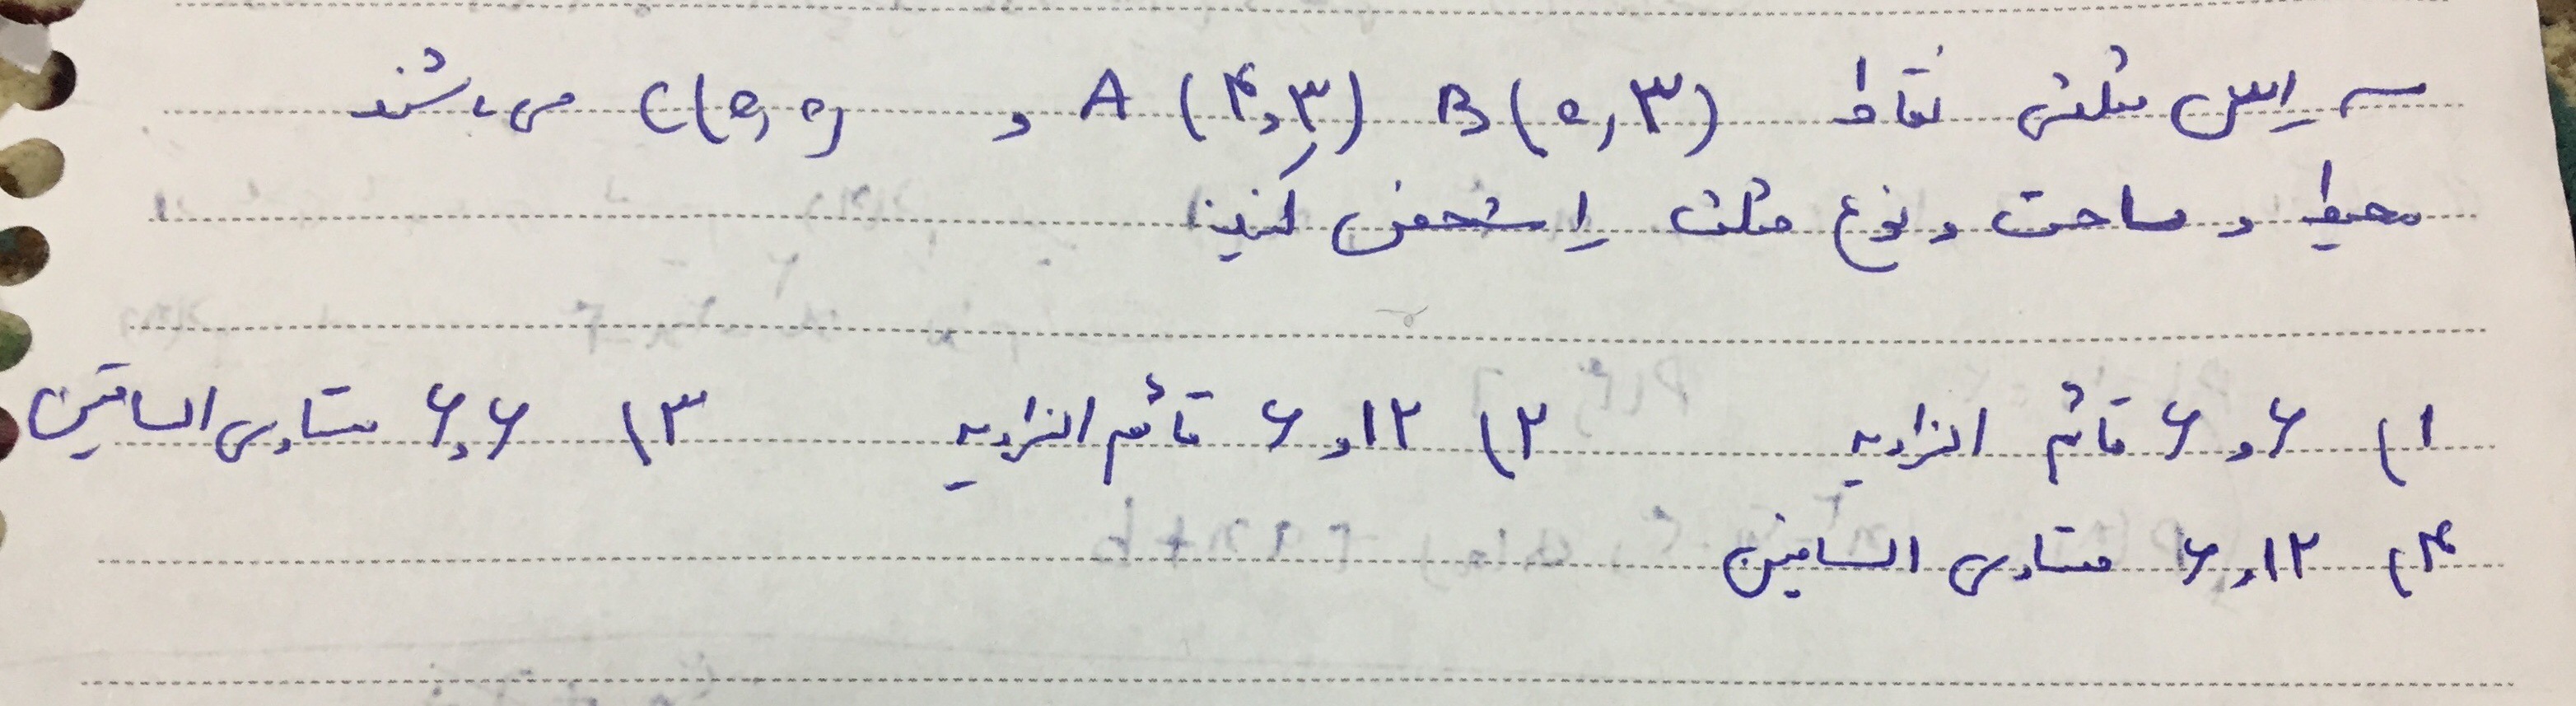 سه راس مثلثی نقاط B(۰,۳) A(۴,۳) و C(۰,۰) می باشند
محیط و مساحت و نوع مثلث را مشخص کنید:
۱) ۶ و ۶ قائم الزاویه ۲) ۱۲ و ۶ قائم الزاویه ۳) ۶ و ۶ متساوی الساقین
۴) ۱۲ و ۶ متساوی الساقین